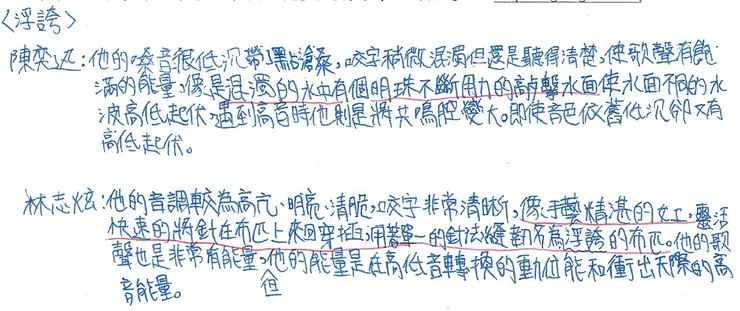 〈浮誇〉
陳奕迅：他的嗓音很低沉帶點滄桑，咬字稍微混濁但還是聽得清楚，使歌聲有飽
滿的能量，像是混濁的水中有個明珠不斷用力的敲擊水面使水面不同的水
波高低起伏，遇到高音時他則是將共鳴腔變大。即使音色依舊低沉卻又有
高低起伏。
林志炫：他的音調較為高亢、明亮、清脆，咬字非常清晰，像手藝精湛的女工，靈活
快速的將針在布匹上來回穿梭，用著單一的針法縫製名為浮誇的布匹。他的歌
聲也是非常有能量，但他的能量是在高低音轉換的動位能和衝出天際的高
音能量。